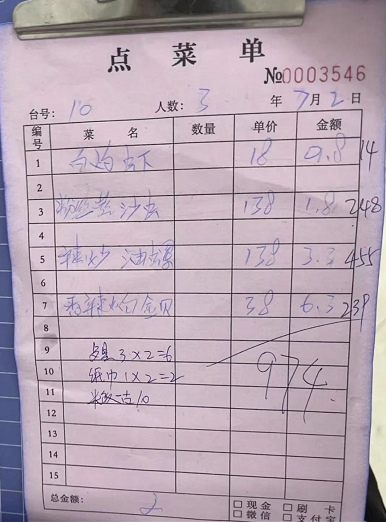 点菜单
№0003546
台号: 10 人数: 3 年 7月2日
编号 菜名 数量 单价 金额
1 白灼虾 18 0.8 14
2
3 粉丝蒸沙虫 138 1.8 248
4
5 辣炒油螺 138 3.3 455
6
7 香辣炒白金贝 38 6.3 239
8
9 3×2=6
10 纸巾1×2=2
11 10
974
12
13
14
15
总金额:
□现金 □刷卡
□微信 □支付宝